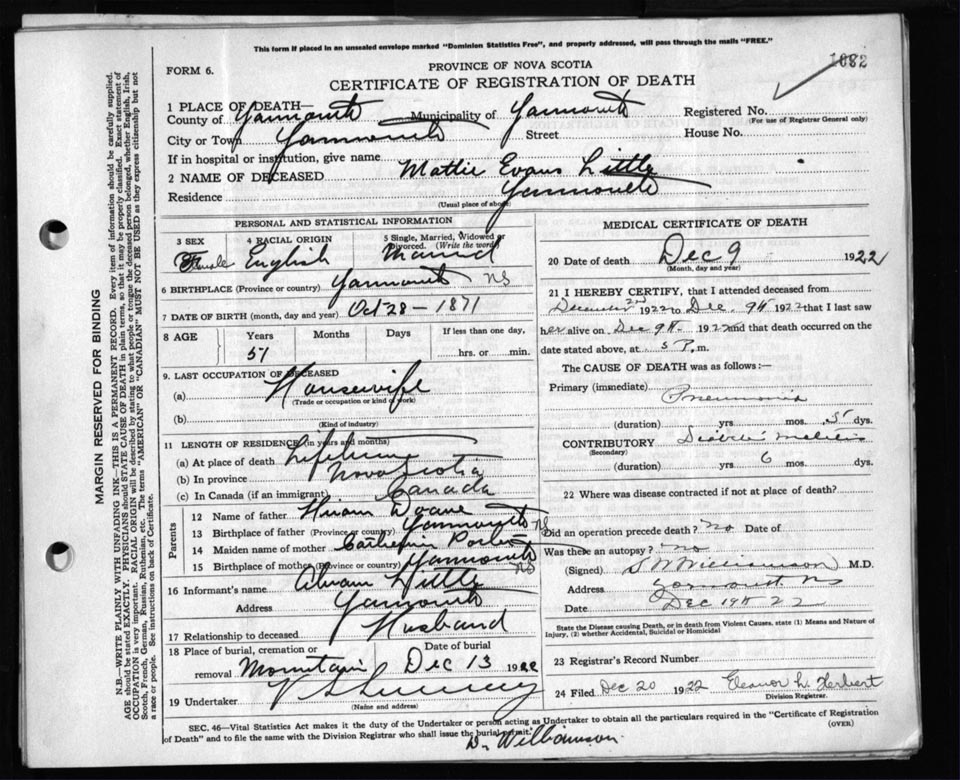 This form if placed in an unsealed envelope marked "Dominion Statistics Free", and properly addressed, will pass through the mails "FREE."
FORM 6.
PROVINCE OF NOVA SCOTIA
1082
CERTIFICATE OF REGISTRATION OF DEATH
1 PLACE OF DEATH—
County of Yarmouth Municipality of Yarmouth Registered No.
(For use of Registrar General only)
City or Town Yarmouth Street House No.
If in hospital or institution, give name
2 NAME OF DECEASED Mattie Evans Little
Residence Yarmouth
(Usual place of abode)
MARGIN RESERVED FOR BINDING
N.B.—WRITE PLAINLY WITH UNFADING INK—THIS IS A PERMANENT RECORD. Every item of information should be carefully supplied.
AGE should be stated EXACTLY. PHYSICIANS should STATE CAUSE OF DEATH in plain terms, so that it may be properly classified. Exact statement of
OCCUPATION is very important. RACIAL ORIGIN will be described by stating to what people or tongue the deceased person belonged, whether English, Irish,
Scotch, French, German, Russian, Ruthenian, etc. The terms "AMERICAN" OR "CANADIAN" MUST NOT BE USED as they express citizenship but not
a race or people. See instructions on back of Certificate.
PERSONAL AND STATISTICAL INFORMATION
3 SEX 4 RACIAL ORIGIN 5 Single, Married, Widowed or
Divorced. (Write the word)
Female English Married
6 BIRTHPLACE (Province or country) Yarmouth NS
7 DATE OF BIRTH (month, day and year) Oct 28 - 1871
8 AGE Years Months Days If less than one day,
51 hrs. or min.
9. LAST OCCUPATION OF DECEASED
(a) Housewife
(Trade or occupation or kind of work)
(b)
(Kind of industry)
11 LENGTH OF RESIDENCE (in years and months)
(a) At place of death Lifetime
(b) In province Nova Scotia
(c) In Canada (if an immigrant) Canada
Parents
12 Name of father Hiram Doane
13 Birthplace of father (Province or country) Yarmouth NS
14 Maiden name of mother Catherin Porter
15 Birthplace of mother (Province or country) Yarmouth NS
16 Informant's name Little
Address Yarmouth
17 Relationship to deceased Husband
18 Place of burial, cremation or Date of burial
removal Mountain Dec 13 1922
19 Undertaker
(Name and address)
MEDICAL CERTIFICATE OF DEATH
20 Date of death Dec 9 1922
(Month, day and year)
21 I HEREBY CERTIFY, that I attended deceased from
December 2nd 1922 to Dec. 9th 1922 that I last saw
her alive on Dec 9th 1922 and that death occurred on the
date stated above, at 5 P. m.
The CAUSE OF DEATH was as follows:—
Primary (immediate) Pneumonia
(duration) yrs mos. 5 dys.
CONTRIBUTORY Diabetes Mellitus
(Secondary)
(duration) yrs 6 mos. dys.
22 Where was disease contracted if not at place of death?
Did an operation precede death? no Date of
Was there an autopsy? no
(Signed) S W Williamson M.D.
Address Yarmouth NS
Date Dec 19th 22
State the Disease causing Death, or in death from Violent Causes, state (1) Means and Nature of
Injury, (2) whether Accidental, Suicidal or Homicidal
23 Registrar's Record Number
24 Filed Dec 20 1922 Eleanor L. Herbert
Division Registrar.
SEC. 46—Vital Statistics Act makes it the duty of the Undertaker or person acting as Undertaker to obtain all the particulars required in the "Certificate of Registration
of Death" and to file the same with the Division Registrar who shall issue the burial permit. (OVER)
Dr Williamson